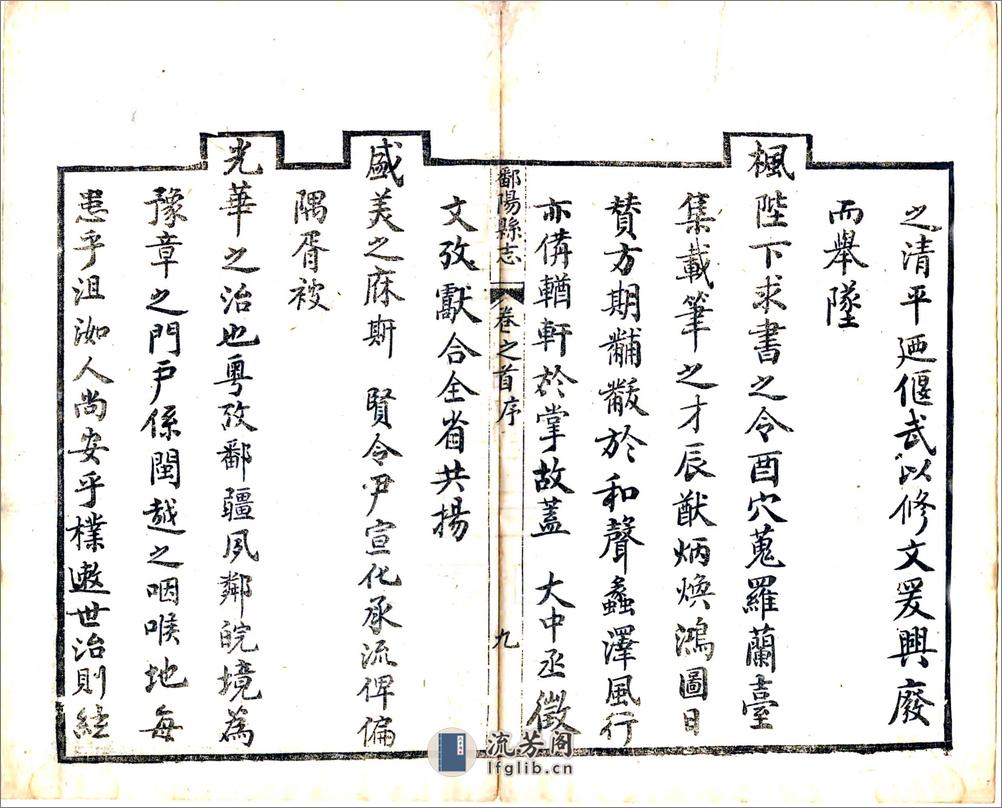 之清平廼偃武以修文爰興廢
而舉墜
楓陛下求書之令酉穴蒐羅蘭臺
集載筆之才辰猷炳煥鴻圖日
賛方期黼黻於和聲蠡澤風行
亦備輶軒於掌故蓋　大中丞徵
文攷獻合全省共揚
盛美之庥斯　賢令尹宣化承流俾偏
隅胥被
光華之治也粵攷鄱疆夙鄰皖境為
豫章之門戶係閩越之咽喉地每
患乎沮洳人尚安乎樸遬世治則絃
鄱陽縣志
卷之首序
九
流芳阁
lfglib.cn